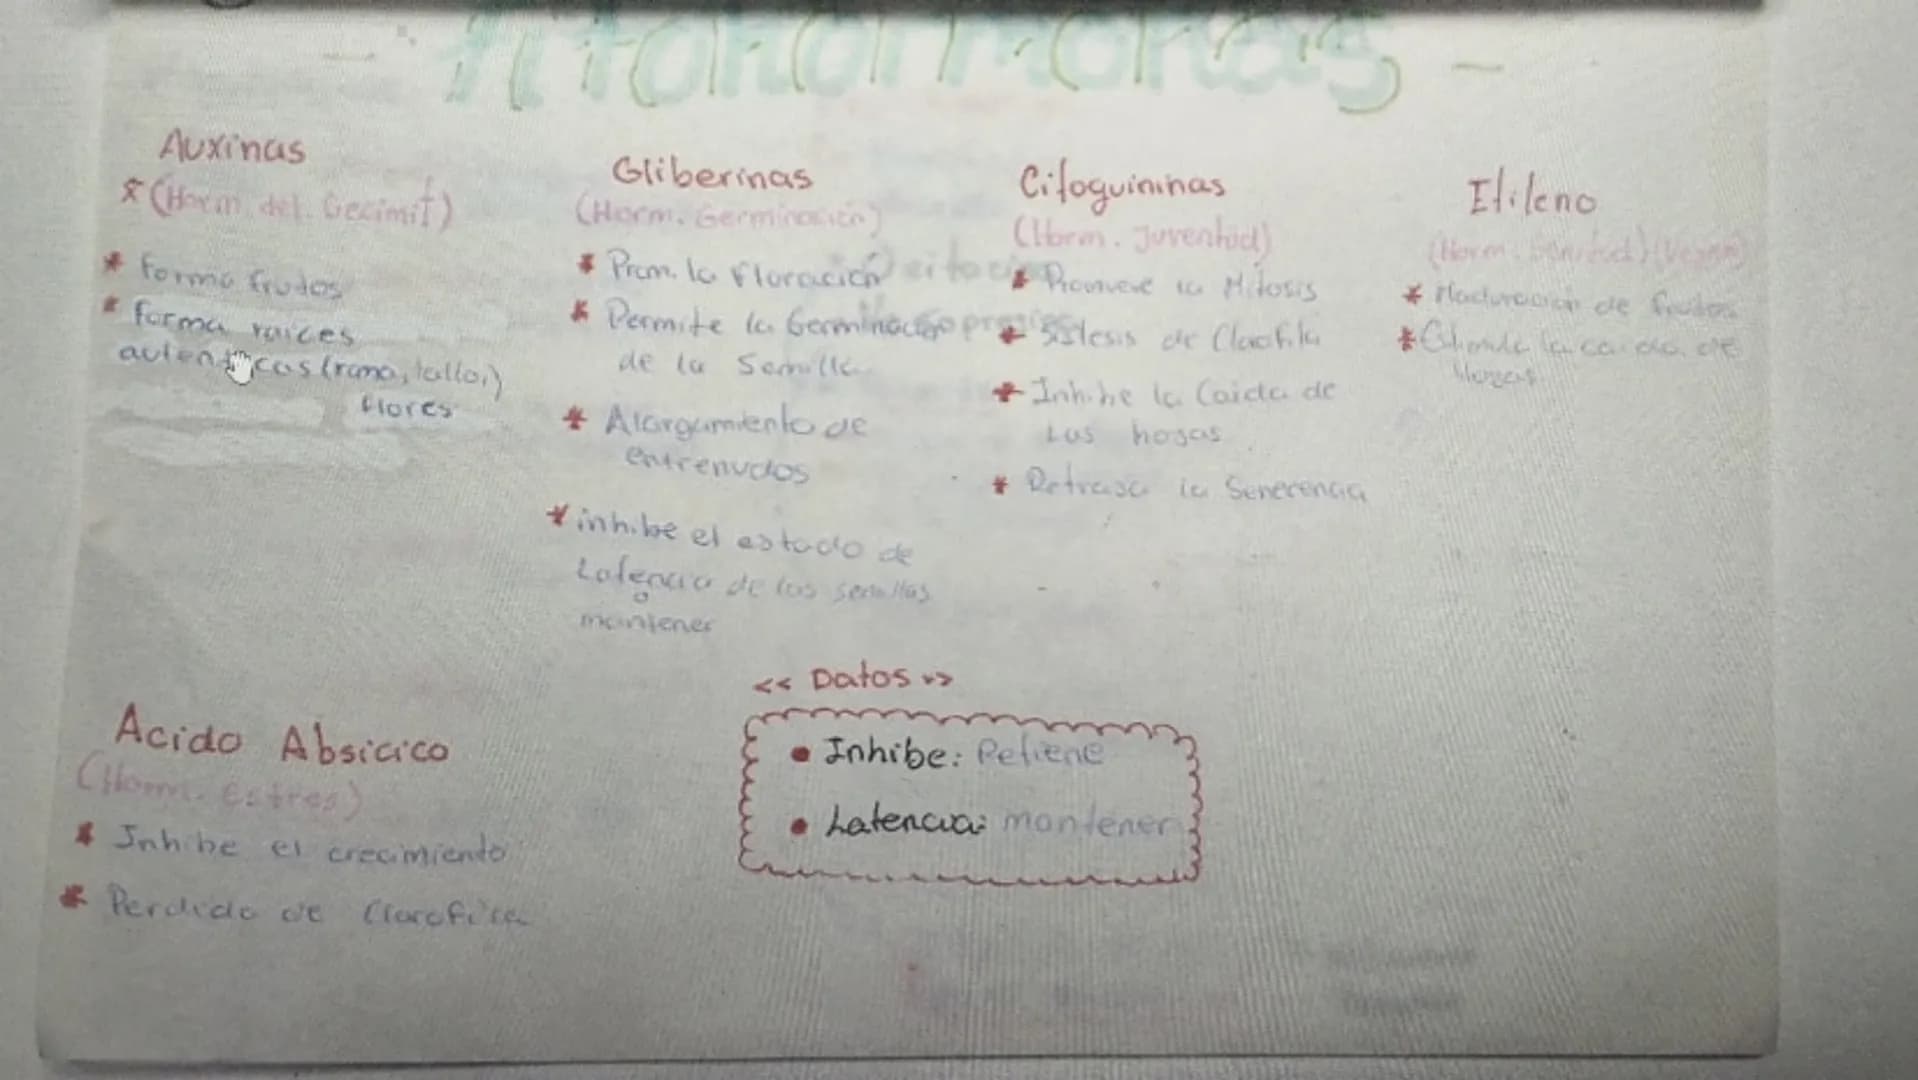 - fitohormonas -
Auxinas
* (Horm. del. Crecimit)
* forma frutos
* forma raices
(rama, tallo,)
flores
Gliberinas
(Horm. Germinación)
* Prom. la floración
* Permite la Germinacion
de la Semilla
* Alargamiento de
entrenudos
* inhibe el estado de
Latencia de las semillas
mantener
Citoquininas
(Horm. Juventud)
* Promueve la Mitosis
* de Clorofila
* Inhibe la Caida de
Las hojas
* Retrasa la
Etileno
(Horm.
* Maduración de frutos
* la caida de
Hojas
Acido Absicico
(Horm. Estres)
* Inhibe el crecimiento
* Perdida de Clorofila
<< Datos >>
• Inhibe: Retiene
• Latencia: mantener